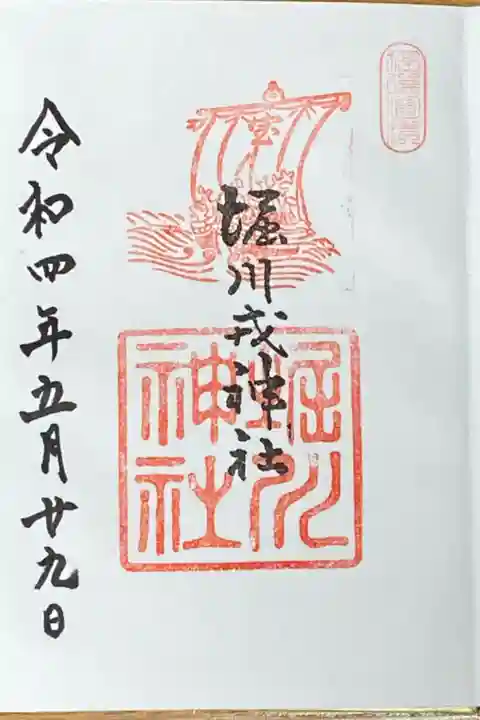 宝
堀川戎神社
堀川
神社
令和四年五月廿九日